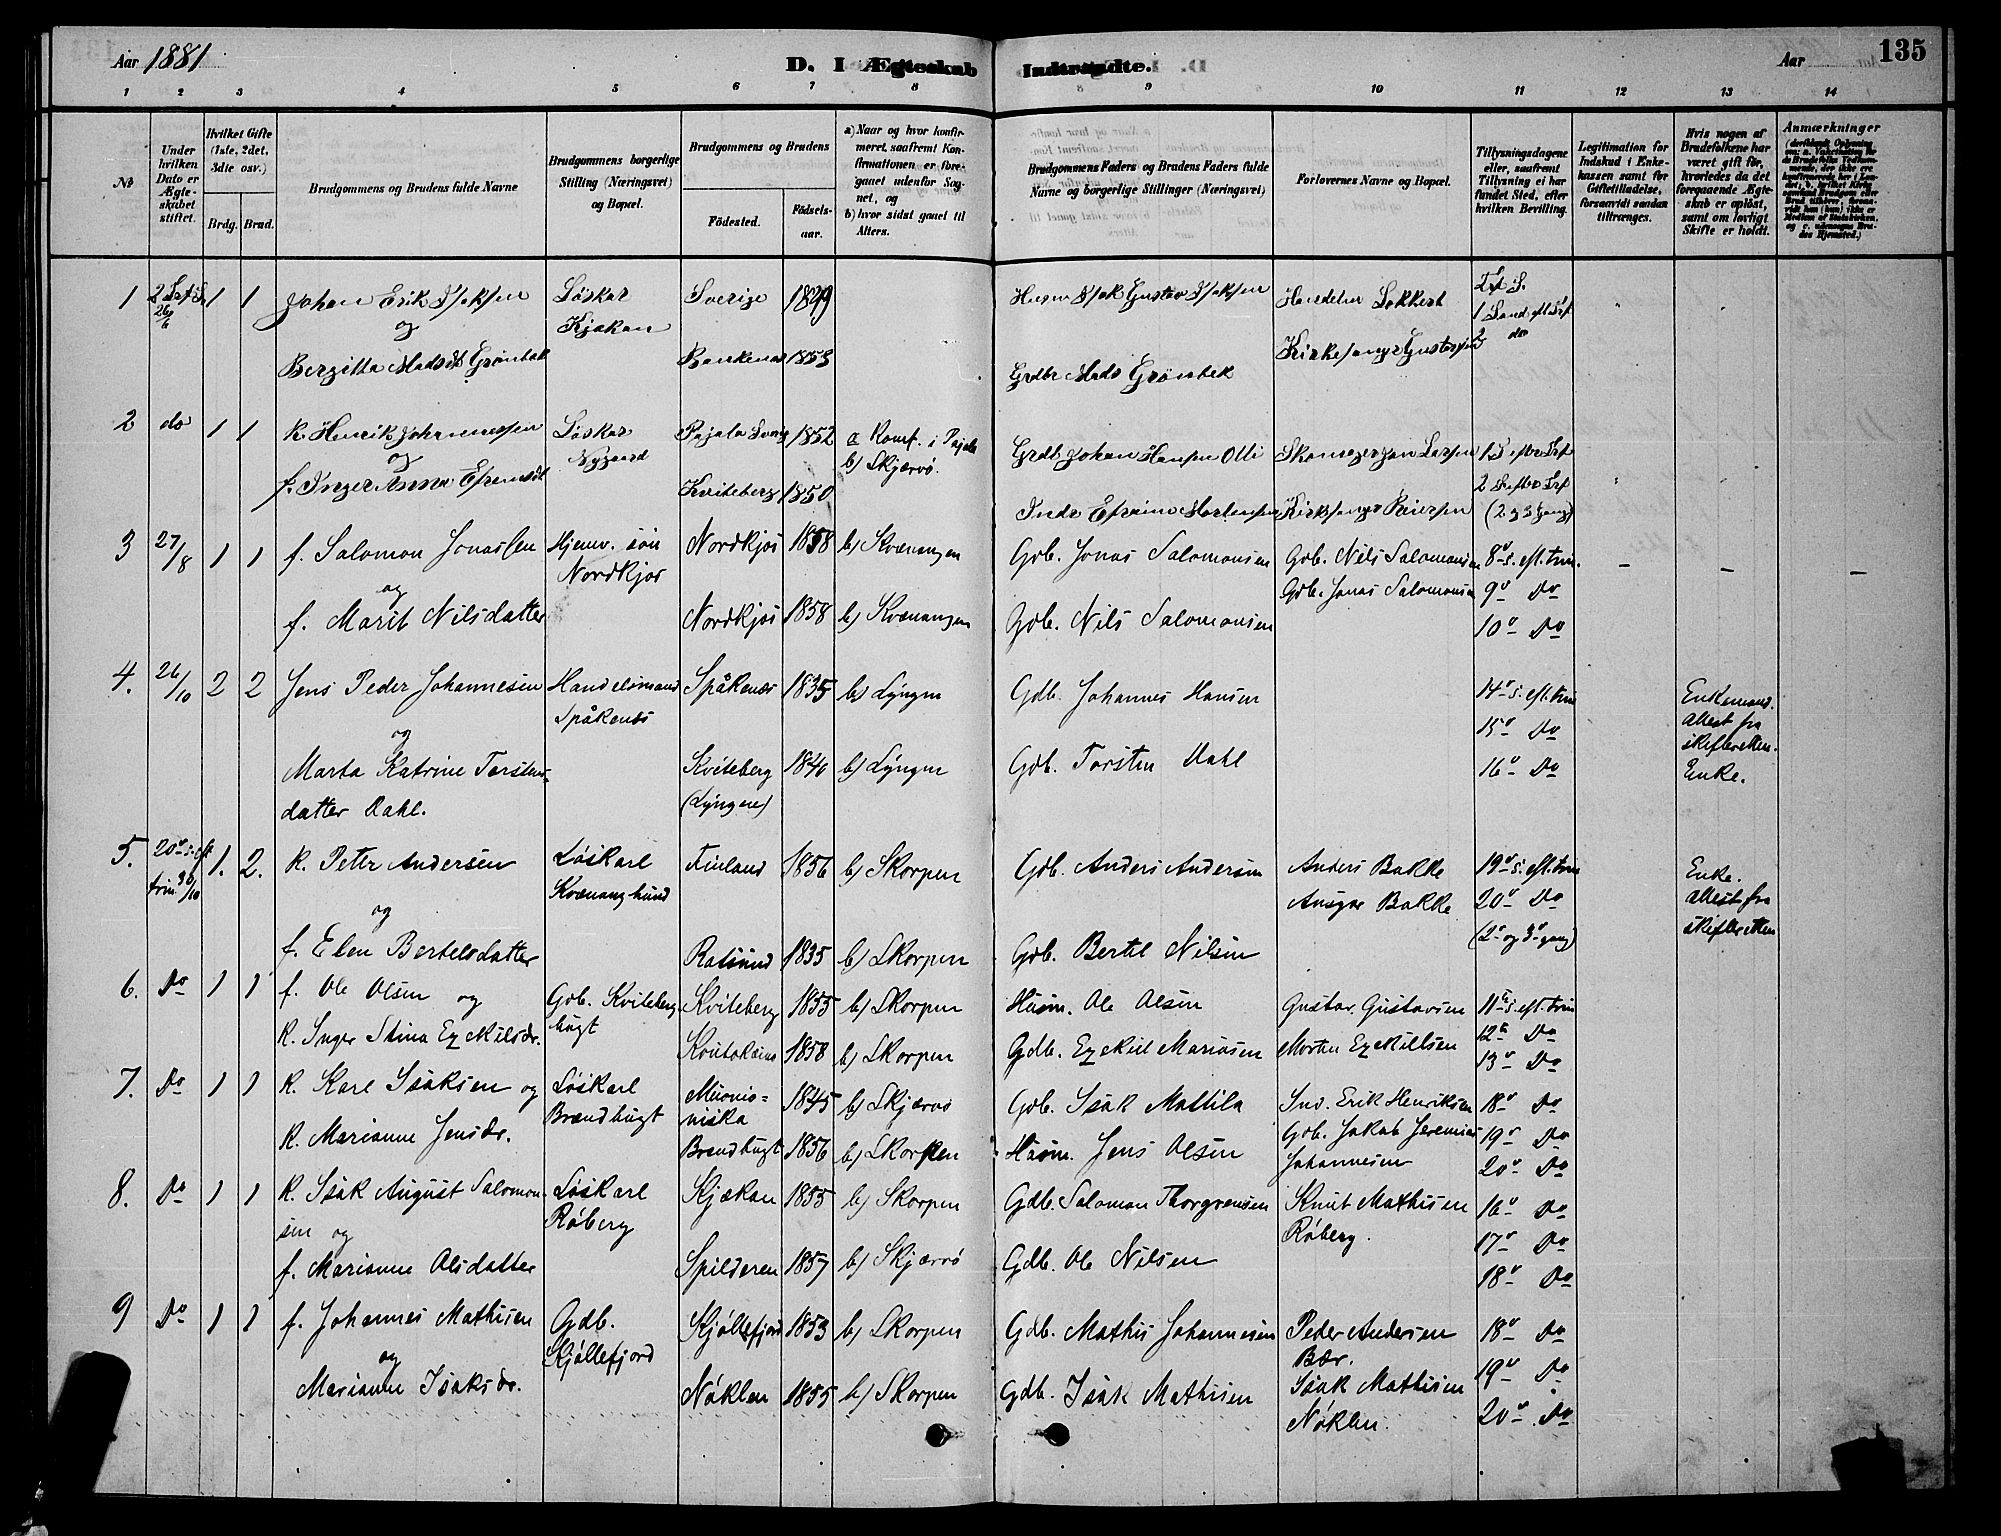 Aar 1881
D. I Ægteskab Indtraadte.
Aar
135
1 2 3 4 5 6 7 8 9 10 11 12 13 14
No
Under hvilken Dato er Ægteskabet stiftet.
Hvilket Gifte (1ste, 2det, 3die osv.)
Brdg. Brud.
Brudgommens og Brudens fulde Navne
Brudgommens borgerlige Stilling (Næringsvei) og Bopæl.
Brudgommens og Brudens
Fødested.
Fødselsaar.
a) Naar og hvor konfirmeret, saafremt Konfirmationen er foregaaet udenfor Sognet, og
b) hvor sidst gaaet til Alters.
Brudgommens Faders og Brudens Faders fulde Navne og borgerlige Stillinger (Næringsvei)
Forlovernes Navne og Bopæl.
Tillysningsdagene eller, saafremt Tillysning ei har fundet Sted, efter hvilken Bevilling.
Legitimation for Indskud i Enkekassen samt for Giftetilladelse, forsaavidt saadan tiltrænges.
Hvis nogen af Brudefolkene har været gift før, hvorledes da det foregaaende Ægteskab er opløst, samt om lovligt Skifte er holdt.
Anmærkninger
1 26/6 1 1 Johan Erik Isaksen Löskar Sverige 1849 Husm Isak Gustav Isaksen Handelsm Lokkert
og Kjækan
Bergitta Madsdt Grönbek 1853 Grdbr Mads Grönbek Kirkesanger Gustavsen 2 do
2 do 1 1 K. Henrik Johannessen Löskar Pajala Sverig 1852 a Konf. i Pajala Grdb Johan Hansen Olli
og Nygaard b) Skjærvö.
f. Inger Anna Efremsdt Kviteberg 1850 Efraim Mortensen Kirkesanger (2 og 3 gang)
3 27/8 1 1 f. Salomon Jonassen Hjemv. sön Nordkjos 1858 b) Kvænangen Gdb. Jonas Salomonsen Gdb. Nils Salomonsen 8de s. eft. trin. – – –
og Nordkjos Gdb. Jonas Salomonsen 9de Do
f. Marit Nilsdatter Nordkjos 1858 b) Kvænangen Gdb. Nils Salomonsen 10de Do
4. 26/10 2 2 Jens Peder Johannesen Handelsmand Spåkenes 1835 b) Lyngen Gdb. Johannes Hansen 14de s. eft. trin Enkemand.
og Spåkenes 15de Do attest fra skifteretten.
Marta Katrine Torstens- Kviteberg 1840 b) Lyngen Gdb. Torsten Dahl 16de Do Enke.
datter Dahl. (Lyngen)
5. 20de s. eft trin 30/10 1. 2. K. Peter Andersen Löskarl Finland 1856 b) Skorpen Gdb. Anders Andersen Anders Bakke 19de s. eft. trin Enke.
og Kvænangbund Ansgar Bakke 20de Do attest fra
f. Elen Bertelsdatter Rotsund 1835 b) Skorpen Gdb. Bertel Nilsen (2de og 3de gang) skifteretten
6. Do 1 1 f. Ole Olsen og Gdb. Kviteberg- Kviteberg 1855 b) Skorpen Husm. Ole Olsen Gustav Gustavsen 11te s. eft. trin
K. Inger Stina Ezekilsdr. bugt Koutokeino 1858 b) Skorpen Gdb. Ezekiel Mariasen Morten Ezekielsen 12te Do
13de Do
7. Do 1 1 K. Karl Isaksen og Löskarl Muonio- 1845 b) Skjærvö Gdb. Isak Mattila Ind. Erik Henriksen 18de Do
Brændbugt niska Gdb. Jakob Jeremias 19de Do
K. Marianne Jensdr. Brændbugt 1856 b) Skorpen Husm. Jens Olsen Johannesen 20de Do
8. Do 1 1 K. Isak August Salomon- Löskarl Kjækan 1855 b) Skorpen Gdb. Salomon Thorgrensen Knut Mathisen 16de Do
sen og Röberg Röberg. 17de Do
f. Marianne Olsdatter Spilderen 1857 b) Skjærvö Gdb. Ole Nilsen 18de Do
9 Do 1 1 f. Johannes Mathisen Gdb. Kjöllefjord 1853 b) Skorpen Gdb. Mathis Johannesen Peder Andersen 18de Do
og Kjöllefjord 19de Do
Marianne Isaksdr. Nöklen 1855 b) Skorpen Gdb. Isak Mathisen Isak Mathisen 20de Do
Nöklen.